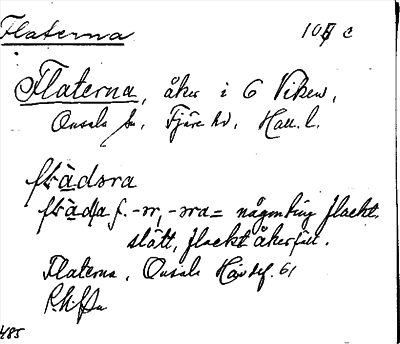 Flaterna
Flaterna, åker i 6 Viken,
Onsala sn, Fjäre hd, Hall. l.
f. -ər, -əra = någonting flackt
slätt, flackt åkerfält.
Flaterna, Onsala Hävdef. 61
485